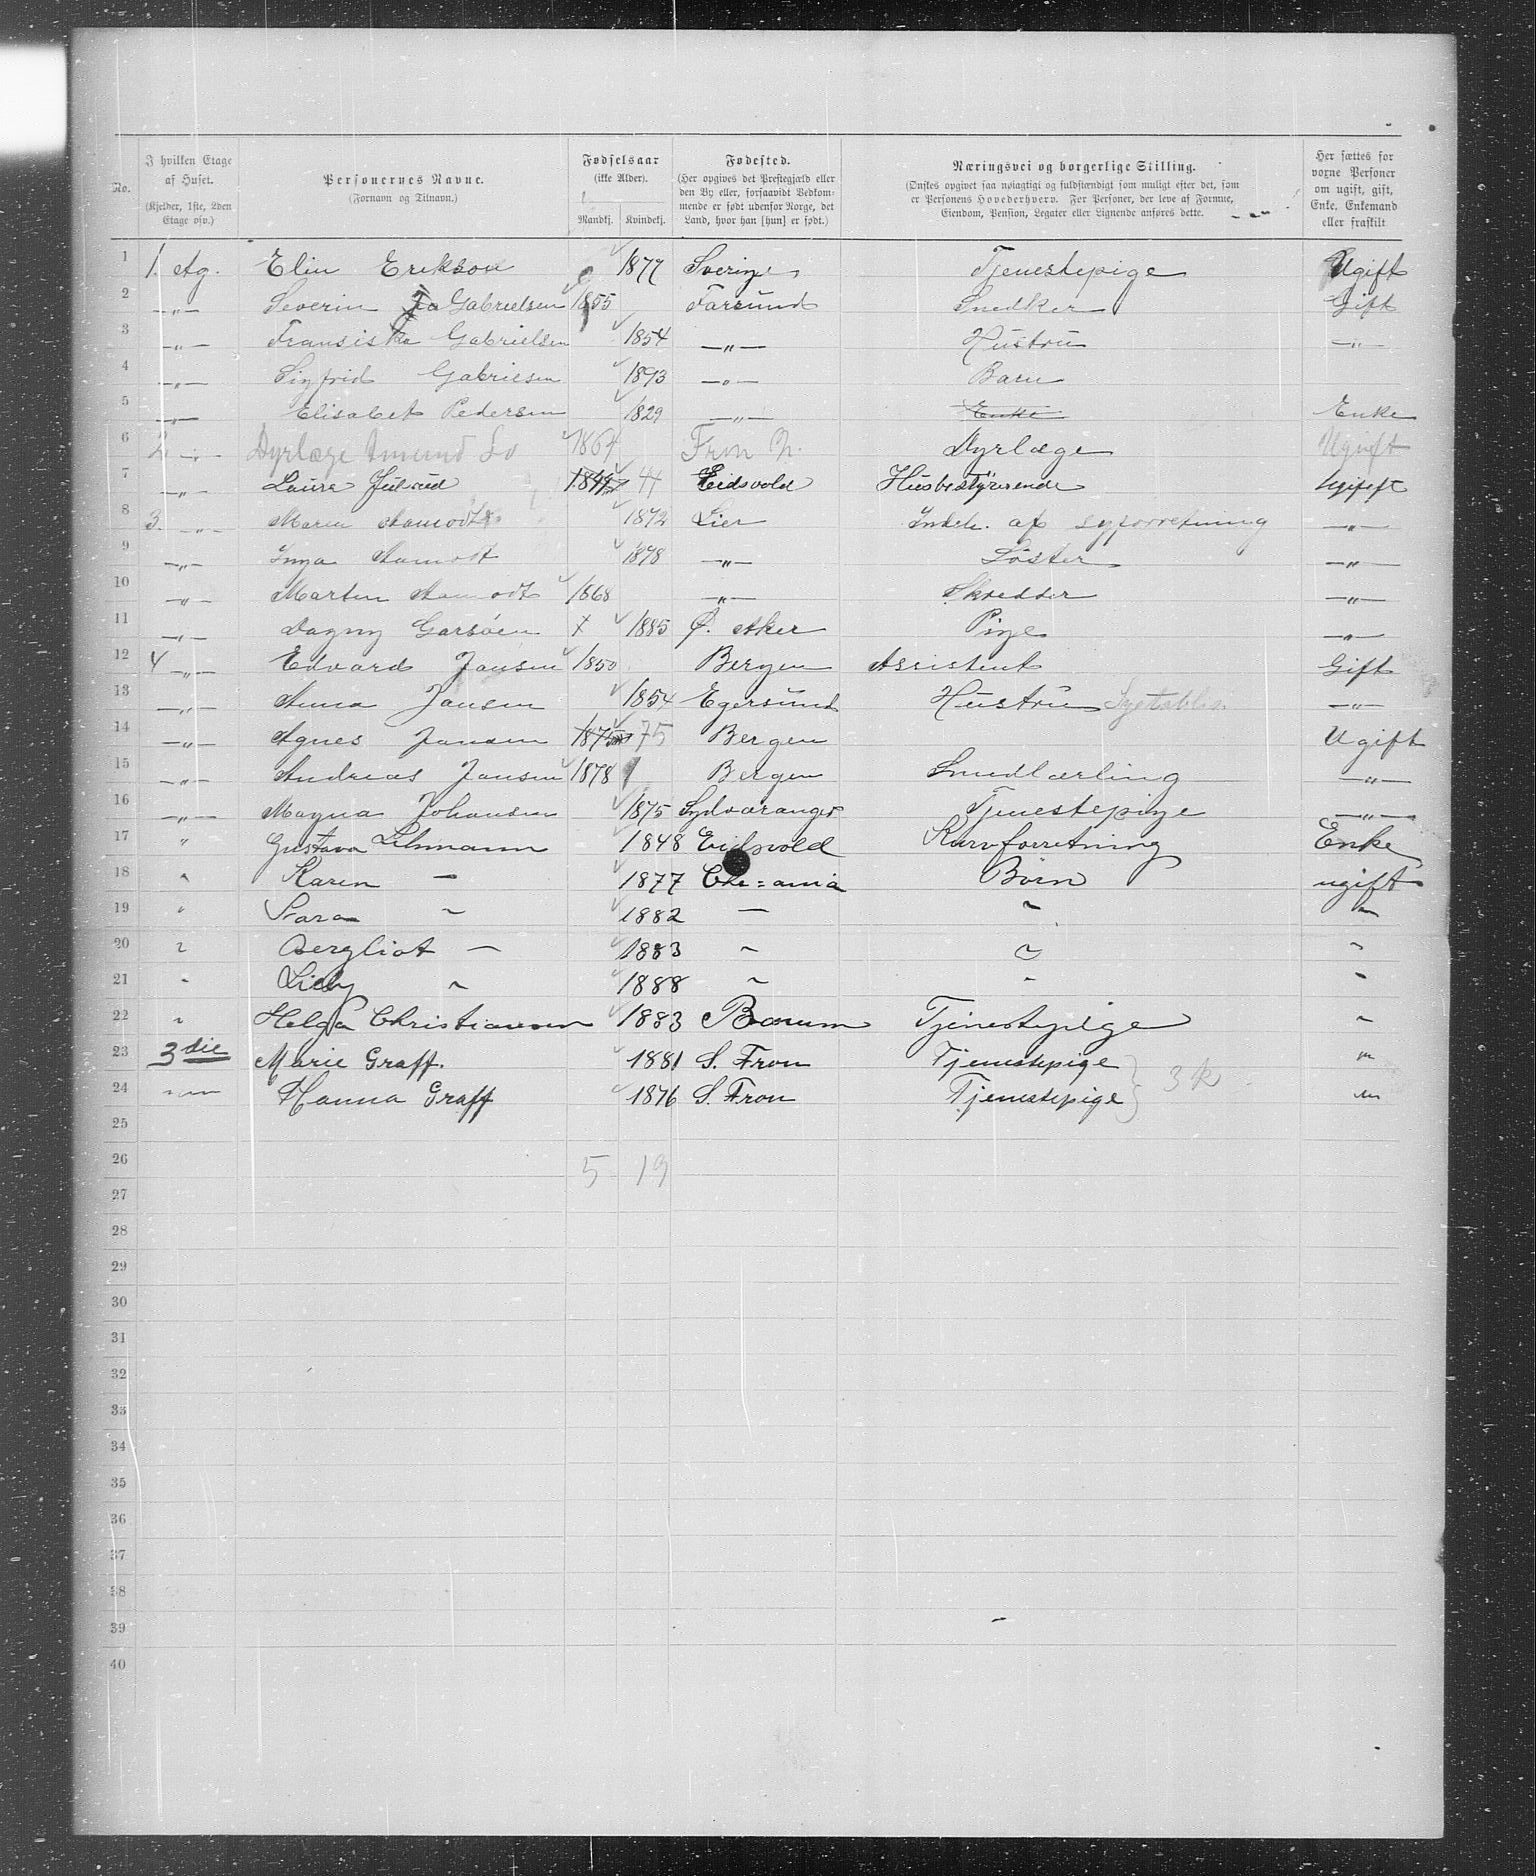 No.
I hvilken Etage af Huset. (Kjelder, 1ste, 2den Etage osv.)
Personernes Navne. (Fornavn og Tilnavn.)
Fødselsaar (ikke Alder). Mandkj. Kvindekj.
Fødested. (Her opgives det Prestegjæld eller den By eller, forsaavidt Vedkommende er født udenfor Norge, det Land, hvor han [hun] er født.)
Næringsvei og borgerlige Stilling. (Ønskes opgivet saa nøiagtigt og fuldstændigt som muligt efter det, som er Personens Hovederhverv. For Personer, der leve af Formue, Eiendom, Pension, Legater eller Lignende anføres dette.
Her sættes for voxne Personer om ugift, gift, Enke, Enkemand eller fraskilt
1 1. Etg. Elin Erikson 1877 Sverige Tjenestepige Ugift
2 -„- Severin Gabrielsen 1855 Farsund Snedker Gift
3 -„- Fransiska Gabrielsen 1854 -„- Hustru -„-
4 -„- Sigfrid Gabrielsen 1893 -„- Barn
5 -„- Elisabet Pedersen 1829 -„- Enke Enke
6 2 -„- Dyrlæge Amund Lo 1864 Fron N. Dyrlæge Ugift
7 -„- Laura Julsrud 1844 44 Eidsvold Husbestyrerende Ugift
8 3. -„- Maria Aamodt 1872 Lier Indeh. af syforretning -„-
9 -„- Inga Aamodt 1878 -„- Søster -„-
10 -„- Marten Aamodt 1868 -„- Skredder -„-
11 -„- Dagny Garsøen x 1885 Ø. Aker Pige -„-
12 4 -„- Edvard Jansen 1850 Bergen Assistent Gift
13 -„- Anna Jansen 1854 Egersund Hustru -„-
14 -„- Agnes Jansen 1875 75 Bergen Ugift
15 -„- Andreas Jansen 1878 Bergen Smedlærling -„-
16 -„- Magna Johansen 1875 Sydvaranger Tjenestepige -„-
17 „ Gustava Lehmann 1848 Eidsvold Kurvforretning Enke
18 „ Karen — 1877 Chr=ania Børn ugift
19 „ Sara „ 1882 — „ „
20 „ Bergliot — 1883 „ „ „
21 „ Lilly „ 1888 „ „ „
22 „ Helga Christiansen 1883 Bærum Tjenestepige „
23 3die Marie Graff. 1881 S. Fron Tjenestepige „
24 „ Hanna Graff 1876 S. Fron Tjenestepige „
3 k
25
26 5 19
27
28
29
30
31
32
33
34
35
36
37
38
39
40